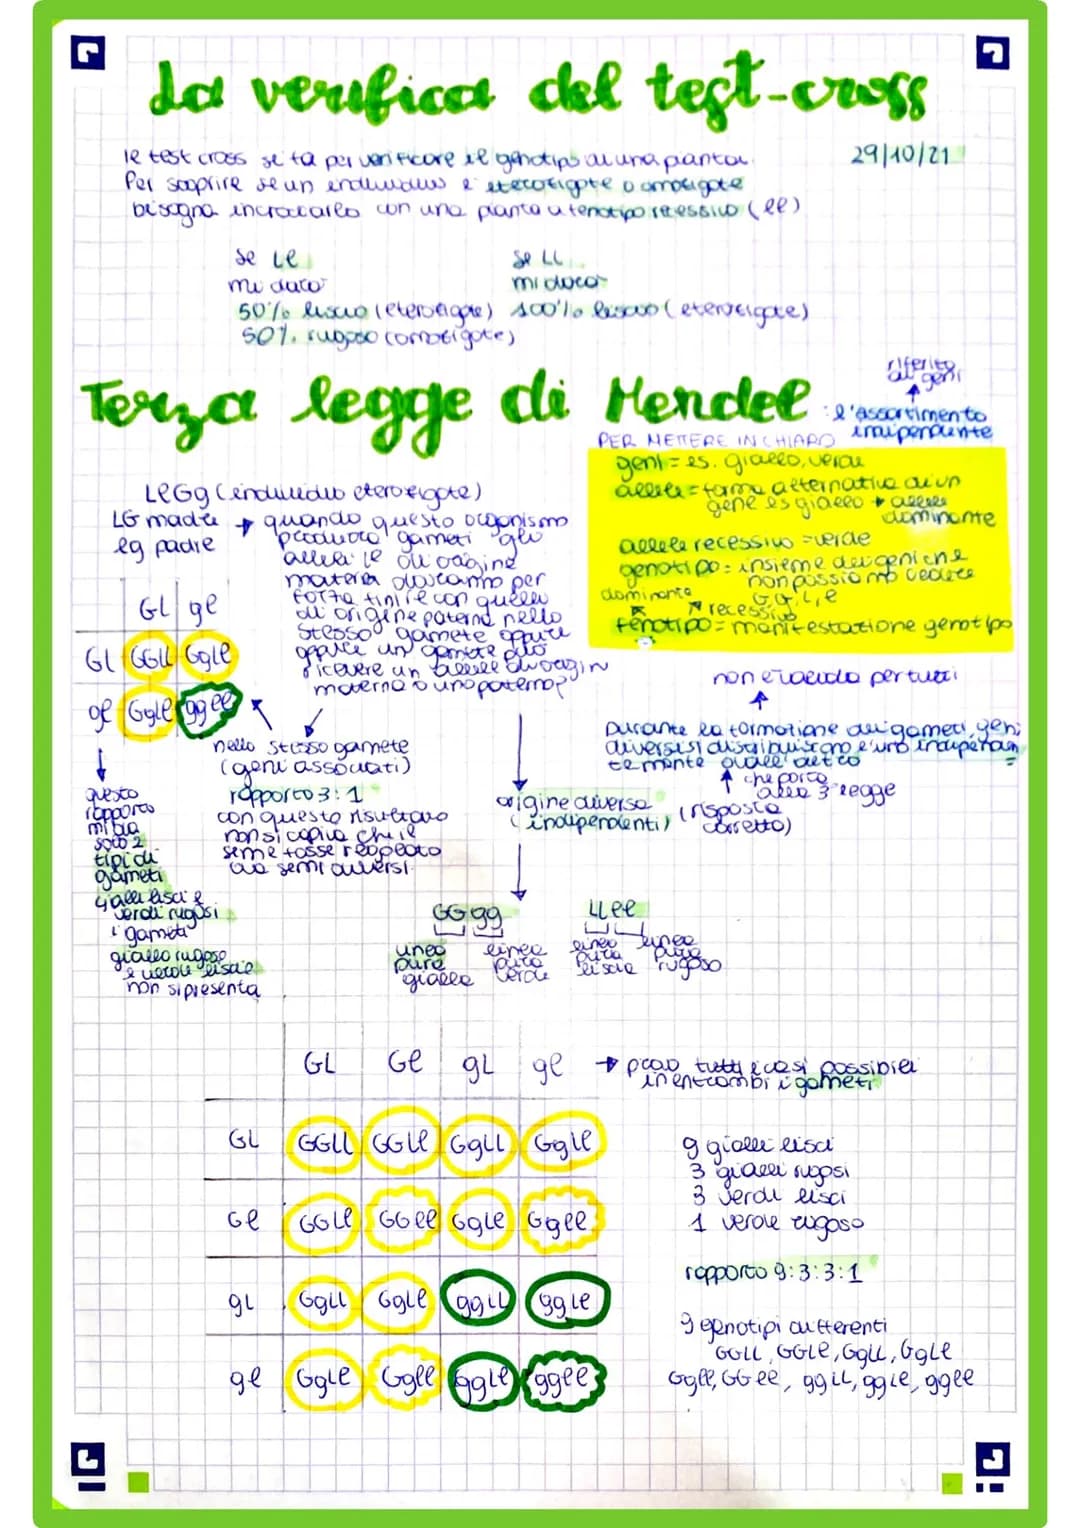 La verifica del test-cross
29/10/21
Il test cross si fa per verificare il genotipo di una pianta.
Per scoprire se un individuo è eterozigote o omozigote
bisogna incrociarlo con una pianta a fenotipo recessivo (ll)
se Ll
mi darà
50% liscio (eterozigote)
50% rugoso (omozigote)
se LL
mi darà
100% liscio (eterozigote)
Terza legge di Mendel : l'assortimento
indipendente
riferito
ai geni
PER METTERE IN CHIARO
geni = es. giallo, verde
allele = forma alternativa di un
gene es giallo → allele
dominante
allele recessivo = verde
genotipo = insieme dei geni che
non possiamo vedere
dominante G, g, L, l
recessivo
fenotipo = manifestazione genotipo
LlGg (individuo eterozigote)
LG madre
lg padre
→ quando questo organismo
produrrà gameti gli
alleli le di origine
materna dovranno per
forza finire con quelli
di origine paterna nello
stesso gamete oppure
oppure un gamete può
ricevere un allele di origin
materna o uno paterno?
GL gl
GL GGLL GgLl
gl GgLl ggll
questo
rapporto
mi dà
solo 2
tipi di
gameti
gialli lisci e
verdi rugosi
i gameti
giallo rugoso
e verde liscio
non si presenta
nello stesso gamete
(geni associati)
rapporto 3:1
con questo risultato
non si capiva che il
seme fosse regolato
da semi diversi
origine diversa
(indipendenti)
(risposta
corretto)
non è valida per tutti
Durante la formazione dei gameti, geni
diversi si distribuiscono l'uno indipenden
temente dall'altro
che porta
alla 3° legge
GG gg
linea
pura
gialla
linea
pura
verde
LL ll
linea
pura
liscia
linea
pura
rugoso
GL Gl gL gl → provo tutti i casi possibili
in entrambi i gameti
GL GGLL GGLl GgLL GgLl
Gl GGLl GGll GgLl Ggll
gL GgLL GgLl ggLL ggLl
gl GgLl Ggll ggLl ggll
9 gialli lisci
3 gialli rugosi
3 verdi lisci
1 verde rugoso
rapporto 9:3:3:1
9 genotipi differenti
GGLL, GGLl, GgLL, GgLl
Ggll, GGll, ggLL, ggLl, ggll